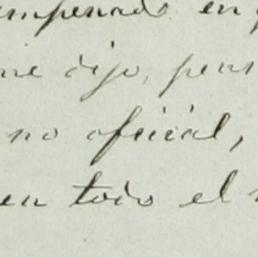 empeñado en
me dijo, pens
no oficial,
en todo el